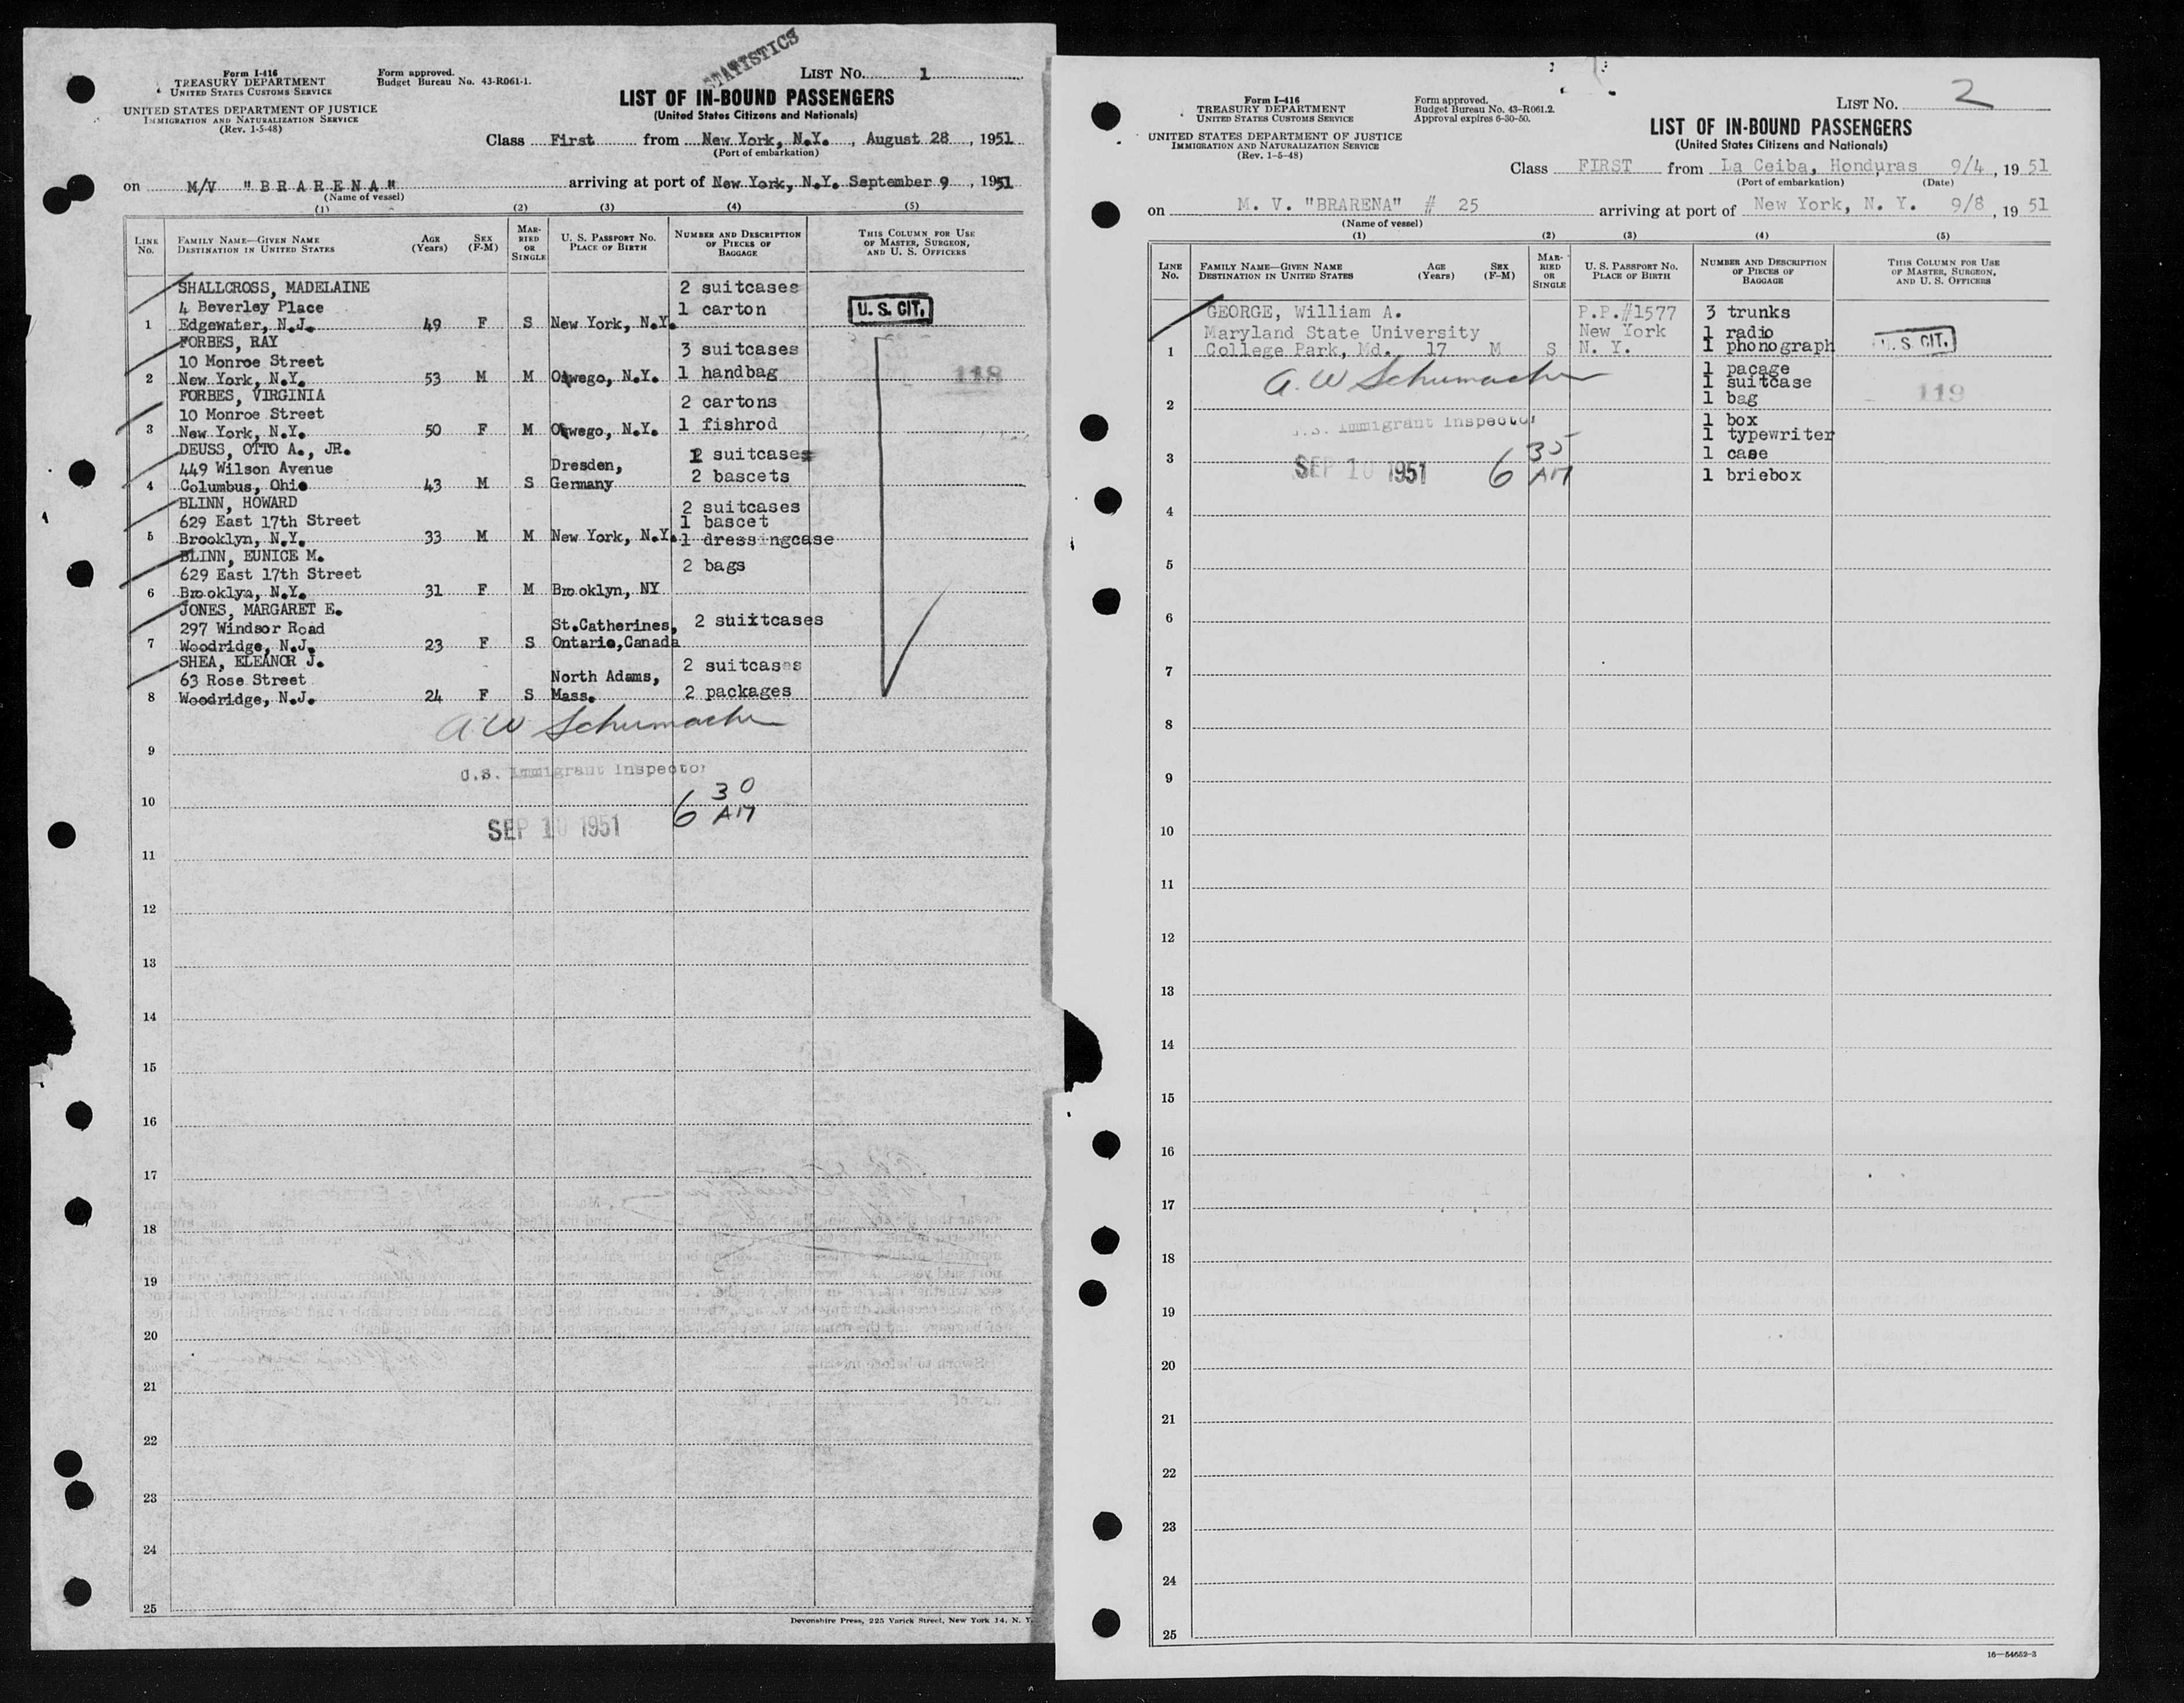 STATISTICS
Form I-416
TREASURY DEPARTMENT
UNITED STATES CUSTOMS SERVICE
UNITED STATES DEPARTMENT OF JUSTICE
IMMIGRATION AND NATURALIZATION SERVICE
(Rev. 1-5-48)
Form approved.
Budget Bureau No. 43-R061-1.
LIST No. 1
LIST OF IN-BOUND PASSENGERS
(United States Citizens and Nationals)
Class First from New York, N.Y., August 28, 1951
(Port of embarkation)
on M/V "BRARENA" arriving at port of New York, N.Y. September 9, 1951
(Name of vessel)
(1) (2) (3) (4) (5)
LINE No. FAMILY NAME—GIVEN NAME DESTINATION IN UNITED STATES AGE (Years) SEX (F-M) MARRIED OR SINGLE U. S. PASSPORT No. PLACE OF BIRTH NUMBER AND DESCRIPTION OF PIECES OF BAGGAGE THIS COLUMN FOR USE OF MASTER, SURGEON, AND U. S. OFFICERS
SHALLCROSS, MADELAINE 2 suitcases
4 Beverley Place 1 carton U. S. CIT.
1 Edgewater, N.J. 49 F S New York, N.Y.
FORBES, RAY 3 suitcases
10 Monroe Street 1 handbag 118
2 New York, N.Y. 53 M M Oswego, N.Y.
FORBES, VIRGINIA 2 cartons
10 Monroe Street 1 fishrod
3 New York, N.Y. 50 F M Oswego, N.Y.
DEUSS, OTTO A., JR. 2 suitcases
449 Wilson Avenue Dresden, 2 bascets
4 Columbus, Ohio 43 M S Germany
BLINN, HOWARD 2 suitcases
629 East 17th Street 1 bascet
5 Brooklyn, N.Y. 33 M M New York, N.Y. 1 dressingcase
BLINN, EUNICE M. 2 bags
629 East 17th Street
6 Brooklyn, N.Y. 31 F M Brooklyn, NY
JONES, MARGARET E.
297 Windsor Road St.Catherines, 2 suitcases
7 Woodridge, N.J. 23 F S Ontario,Canada
SHEA, ELEANOR J. 2 suitcases
63 Rose Street North Adams,
8 Woodridge, N.J. 24 F S Mass. 2 packages
A W Schumacher
9
U.S. Immigrant Inspector
10 6 30 AM
SEP 10 1951
11
12
13
14
15
16
17
18
19
20
21
22
23
24
25
Devonshire Press, 225 Varick Street, New York 14, N. Y.
Form I-416
TREASURY DEPARTMENT
UNITED STATES CUSTOMS SERVICE
UNITED STATES DEPARTMENT OF JUSTICE
IMMIGRATION AND NATURALIZATION SERVICE
(Rev. 1-5-48)
Form approved.
Budget Bureau No. 43-R061.2.
Approval expires 6-30-50.
LIST No. 2
LIST OF IN-BOUND PASSENGERS
(United States Citizens and Nationals)
Class FIRST from La Ceiba, Honduras 9/4, 1951
(Port of embarkation) (Date)
on M. V. "BRARENA" # 25 arriving at port of New York, N. Y. 9/8, 1951
(Name of vessel)
(1) (2) (3) (4) (5)
LINE No. FAMILY NAME—GIVEN NAME DESTINATION IN UNITED STATES AGE (Years) SEX (F-M) MARRIED OR SINGLE U. S. PASSPORT No. PLACE OF BIRTH NUMBER AND DESCRIPTION OF PIECES OF BAGGAGE THIS COLUMN FOR USE OF MASTER, SURGEON, AND U. S. OFFICERS
GEORGE, William A. P.P.#1577 3 trunks
Maryland State University New York 1 radio
1 College Park, Md. 17 M S N. Y. 1 phonograph U. S. CIT.
A. W Schumacher 1 pacage
1 suitcase
2 1 bag 119
U.S. Immigrant Inspector 1 box
1 typewriter
3 SEP 10 1951 6 35 AM 1 case
1 briebox
4
5
6
7
8
9
10
11
12
13
14
15
16
17
18
19
20
21
22
23
24
25
16—54652-3